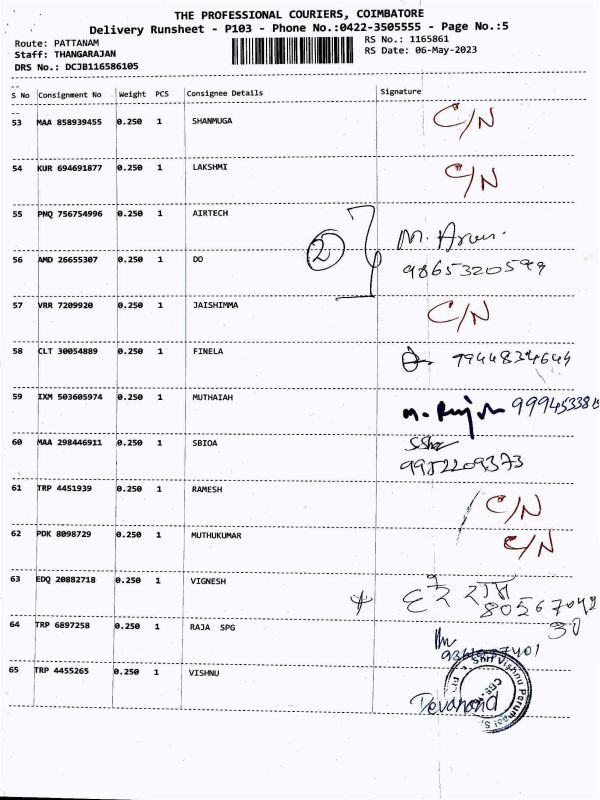 THE PROFESSIONAL COURIERS, COIMBATORE
Delivery Runsheet - P103 - Phone No.:0422-3505555 - Page No.:5
Route: PATTANAM
Staff: THANGARAJAN
DRS No.: DCJB116586105
RS No.: 1165861
RS Date: 06-May-2023
S No Consignment No Weight PCS Consignee Details Signature
53 MAA 858939455 0.250 1 SHANMUGA C/N
54 KUR 694691877 0.250 1 LAKSHMI C/N
55 PNQ 756754996 0.250 1 AIRTECH M. Arun.
2
56 AMD 26655307 0.250 1 DO 9865320599
57 VRR 7209920 0.250 1 JAISHIMMA C/N
58 CLT 30054889 0.250 1 FINELA 7944834644
59 IXM 503605974 0.250 1 MUTHAIAH
60 MAA 298446911 0.250 1 SBIOA
9952209373
61 TRP 4451939 0.250 1 RAMESH C/N
62 PDK 8098729 0.250 1 MUTHUKUMAR C/N
63 EDQ 20882718 0.250 1 VIGNESH
64 TRP 6897258 0.250 1 RAJA SPG 30
65 TRP 4455265 0.250 1 VISHNU Devanand
Shri Vishnu